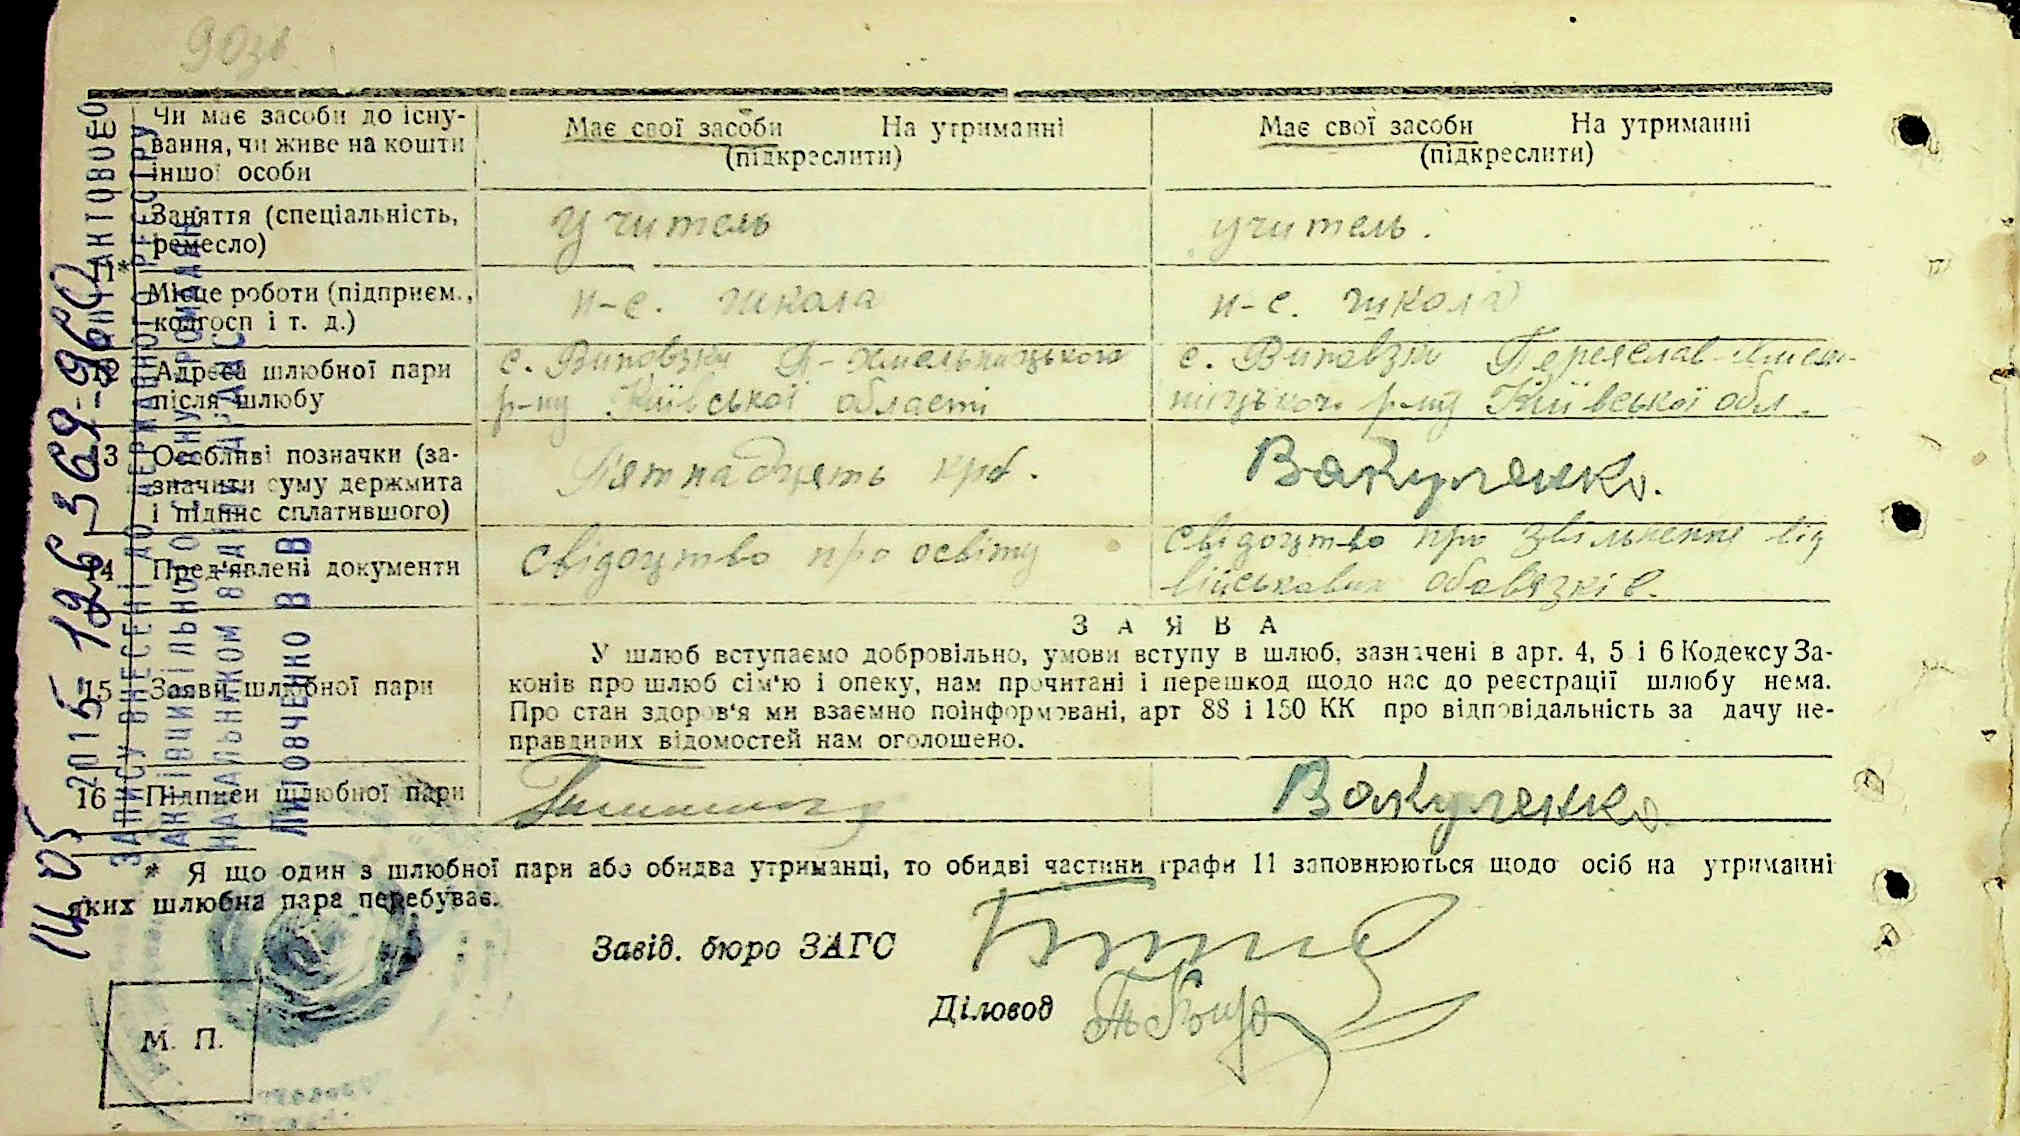 90зв
Чи має засоби до існу-
вання, чи живе на кошти
іншої особи
Має свої засоби На утриманні
(підкреслити)
Має свої засоби На утриманні
(підкреслити)
11*
Заняття (спеціальність,
ремесло)
учитель
учитель.
Місце роботи (підприєм.,
колгосп і т. д.)
н-с. школа
н-с. школа
12 Адреса шлюбної пари
після шлюбу
с. Виповзки П-Хмельницького
р-ну Київської області
с. Виповзки Переяслав-Хмель-
ницьког. р-ну Київської обл.
13 Особливі позначки (за-
значити суму держмита
і підпис сплатившого)
Пятнадцять крб.
Вакуленко.
14 Пред'явлені документи
свідоцтво про освіту
свідоцтво про звільнення від
військових обовязків.
15 Заяви шлюбної пари
ЗАЯВА
У шлюб вступаємо добровільно, умови вступу в шлюб, зазначені в арт. 4, 5 і 6 Кодексу За-
конів про шлюб сім'ю і опеку, нам прочитані і перешкод щодо нас до реєстрації шлюбу нема.
Про стан здоров'я ми взаємно поінформовані, арт 88 і 150 КК про відповідальність за дачу не-
правдивих відомостей нам оголошено.
16 Підписи шлюбної пари
Вакуленко.
* Я що один з шлюбної пари або обидва утриманці, то обидві частини графи 11 заповнюються щодо осіб на утриманні
яких шлюбна пара перебуває.
Завід. бюро ЗАГС
Діловод
М. П.
14 05 2015 126 369-960
АКТОВОГО
ЗАПИСУ ВНЕСЕНІ ДО ДЕРЖАВНОГО РЕЄСТРУ
АКТІВ ЦИВІЛЬНОГО СТАНУ ГРОМАДЯН
НАЧАЛЬНИКОМ ВІДДІЛУ ДРАЦС
ЛИТОВЧЕНКО В В